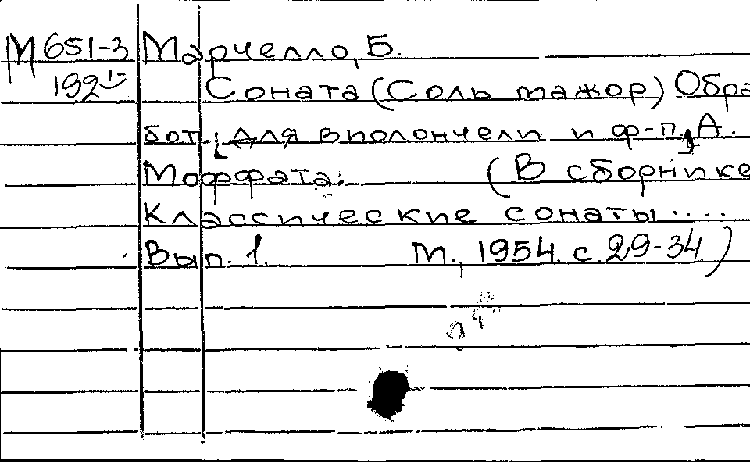 М 651-3 Марчелло, Б.
192 Соната (Соль мажор) Обра
бот. [для виолончели и ф-п.] А.
Моффата. (В сборнике
Классические сонаты....
Вып. 1. М., 1954. с. 29-34)